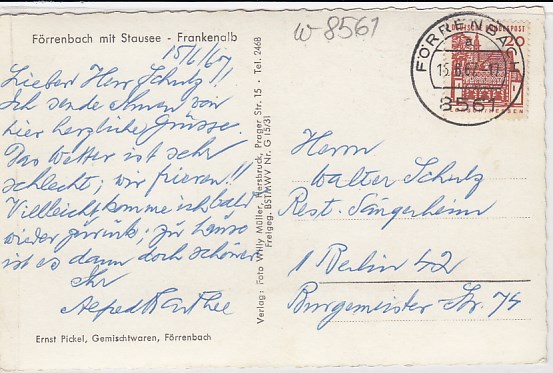 w 8561
Förrenbach mit Stausee - Frankenalb
15/6/67
Lieber Herr Schulz!!
Ich sende Ihnen von
hier herzliche Grüsse.
Das Wetter ist sehr
schlecht; wir frieren!!
Vielleicht komme ich bald
wieder zurück. Zu Hause
ist es dann doch schöner.
Ihr
Alfred
Ernst Pickel, Gemischtwaren, Förrenbach
Verlag: Foto Willy Müller, Hersbruck, Prager Str. 15 · Tel. 2468
Freigeg. BSTMWV Nr. G 15/31
FÖRRENBACH
8561
DEUTSCHE BUNDESPOST
20
Herrn
Walter Schulz
Rest. Sängerheim
1 Berlin 42
Burgemeister-Str. 74